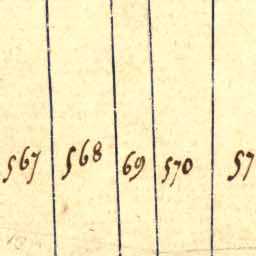 567 568 69 570 57